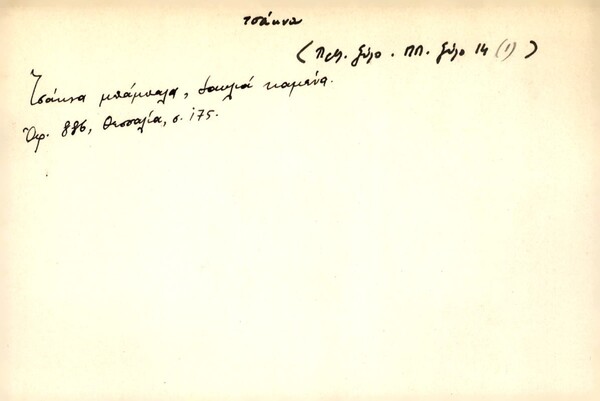 τσάκνα
(Πρλ. ξύλο. ΠΠ. ξύλο 14 (1))
Τσάκνα μπάμπαλα, δαυλιά καμένα.
Ὑφ. 886, Θεσσαλία, σ. 175.